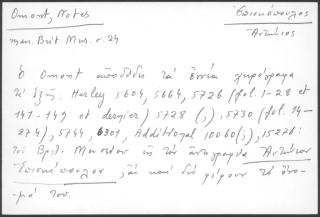 Omont, Notes
Ἐπισκόπουλος
man. Brit. Mus. σ. 24
Ἀντώνιος
Ὁ Omont ἀποδίδει τὰ ἐννέα χειρόγραφα
ἑξῆς: Harley 5604, 5664, 5726 (fol. 1-28 et
141-149 et dernier) 5728 (;), 5730 (fol. 14-
274), 5744, 6301, Addit Royal 10060 (;), 15276:
τοῦ Βρετ. Μουσείου εἰς τὸν ἀντιγραφέα Ἀντώνιον
Ἐπισκόπουλον, ἂν καὶ δὲν φέρουν τὸ ὄνο-
-μά του.